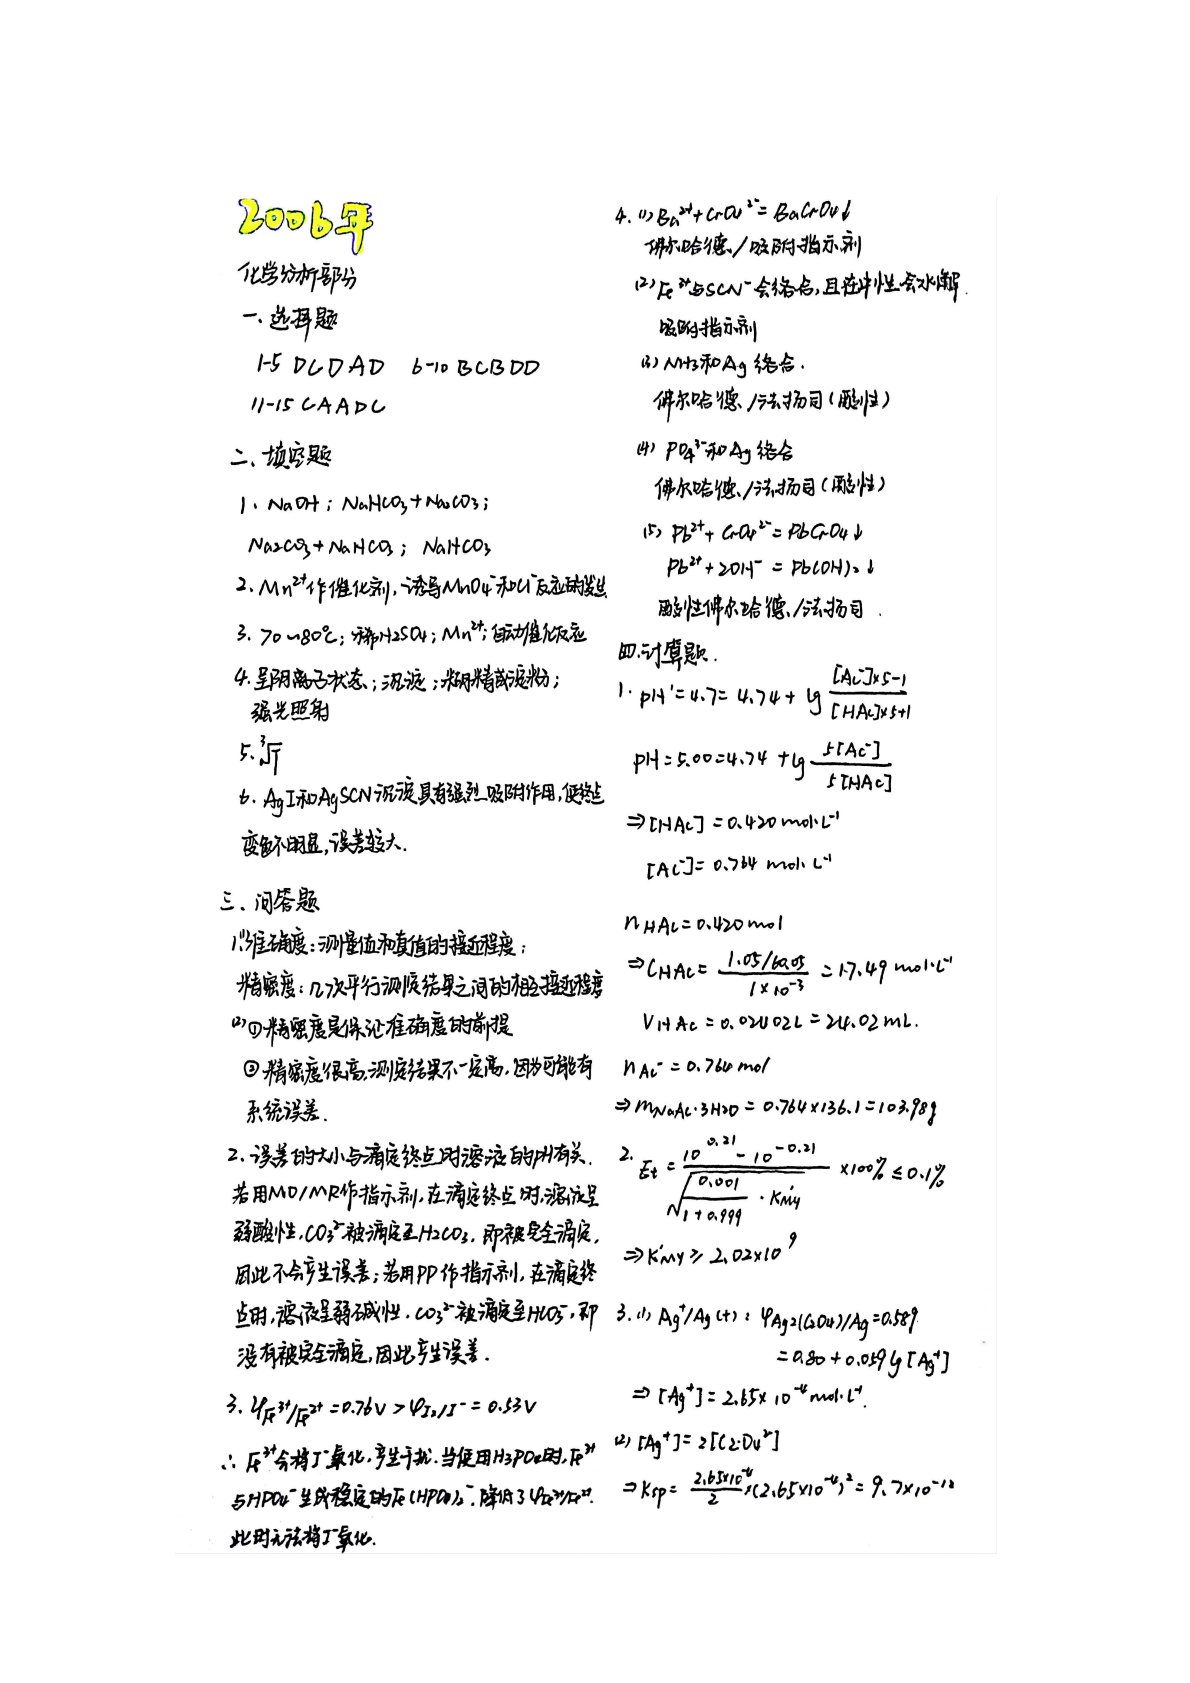 2006年
化学分析部分
一、选择题
1-5 DCDAD 6-10 BCBDD
11-15 CAADC
二、填空题
1. NaOH; NaHCO₃+Na₂CO₃;
Na₂CO₃+NaHCO₃; NaHCO₃
2. Mn²⁺作催化剂,诱导MnO₄⁻和Cl⁻反应的发生
3. 70~80℃; 稀H₂SO₄; Mn²⁺; 自动催化反应
4. 呈阴离子状态; 沉淀; 糊精或淀粉;
强光照射
5. ³√T
6. AgI和AgSCN沉淀具有强烈吸附作用,使终点
变色不明显,误差较大.
三、问答题
1.(1)准确度:测量值和真值的接近程度;
精密度:几次平行测定结果之间的相互接近程度
(2)①精密度是保证准确度的前提
②精密度很高,测定结果不一定高,因为可能有
系统误差.
2. 误差的大小与滴定终点时溶液的pH有关.
若用MO/MR作指示剂,在滴定终点时,溶液呈
弱酸性,CO₃²⁻被滴定至H₂CO₃,即被完全滴定,
因此不会产生误差;若用PP作指示剂,在滴定终
点时,溶液呈弱碱性,CO₃²⁻被滴定至HCO₃⁻,即
没有被完全滴定,因此产生误差.
3. φFe³⁺/Fe²⁺=0.76V>φI₂/I⁻=0.53V
∴Fe³⁺会将I⁻氧化,产生干扰.当使用H₃PO₄时,Fe³⁺
与HPO₄⁻生成稳定的Fe(HPO₄)₂⁻.降低了φFe³⁺/Fe²⁺.
此时无法将I⁻氧化.
4. (1) Ba²⁺+CrO₄²⁻=BaCrO₄↓
佛尔哈德/吸附指示剂
(2) Fe³⁺与SCN⁻会络合,且在中性会水解.
吸附指示剂
(3) NH₃和Ag络合.
佛尔哈德/法扬司(酸性)
(4) PO₄³⁻和Ag络合
佛尔哈德/法扬司(酸性)
(5) Pb²⁺+CrO₄²⁻=PbCrO₄↓
Pb²⁺+2OH⁻=Pb(OH)₂↓
酸性佛尔哈德/法扬司.
四.计算题.
1. pH'=4.7=4.74+lg [Ac⁻]×5-1/[HAc]×5+1
pH=5.00=4.74+lg 5[Ac⁻]/5[HAc]
⇒[HAc]=0.420mol·L⁻¹
[Ac⁻]=0.764 mol·L⁻¹
nHAc=0.420mol
⇒CHAc= 1.05/60.05/1×10⁻³ =17.49 mol·L⁻¹
VHAc=0.02402L=24.02mL.
nAc⁻=0.764mol
⇒mNaAc·3H₂O=0.764×136.1=103.98g
2. Et= 10^0.21-10^-0.21/√(0.001/1+0.999 · K'MY) ×100%≤0.1%
⇒K'MY≥2.02×10⁹
3. (1) Ag⁺/Ag(+): φAg₂(C₂O₄)/Ag=0.589
=0.80+0.059lg[Ag⁺]
⇒[Ag⁺]=2.65×10⁻⁴mol·L⁻¹.
(2) [Ag⁺]=2[C₂O₄²⁻]
⇒Ksp= 2.65×10⁻⁴/2 ×(2.65×10⁻⁴)²=9.7×10⁻¹²